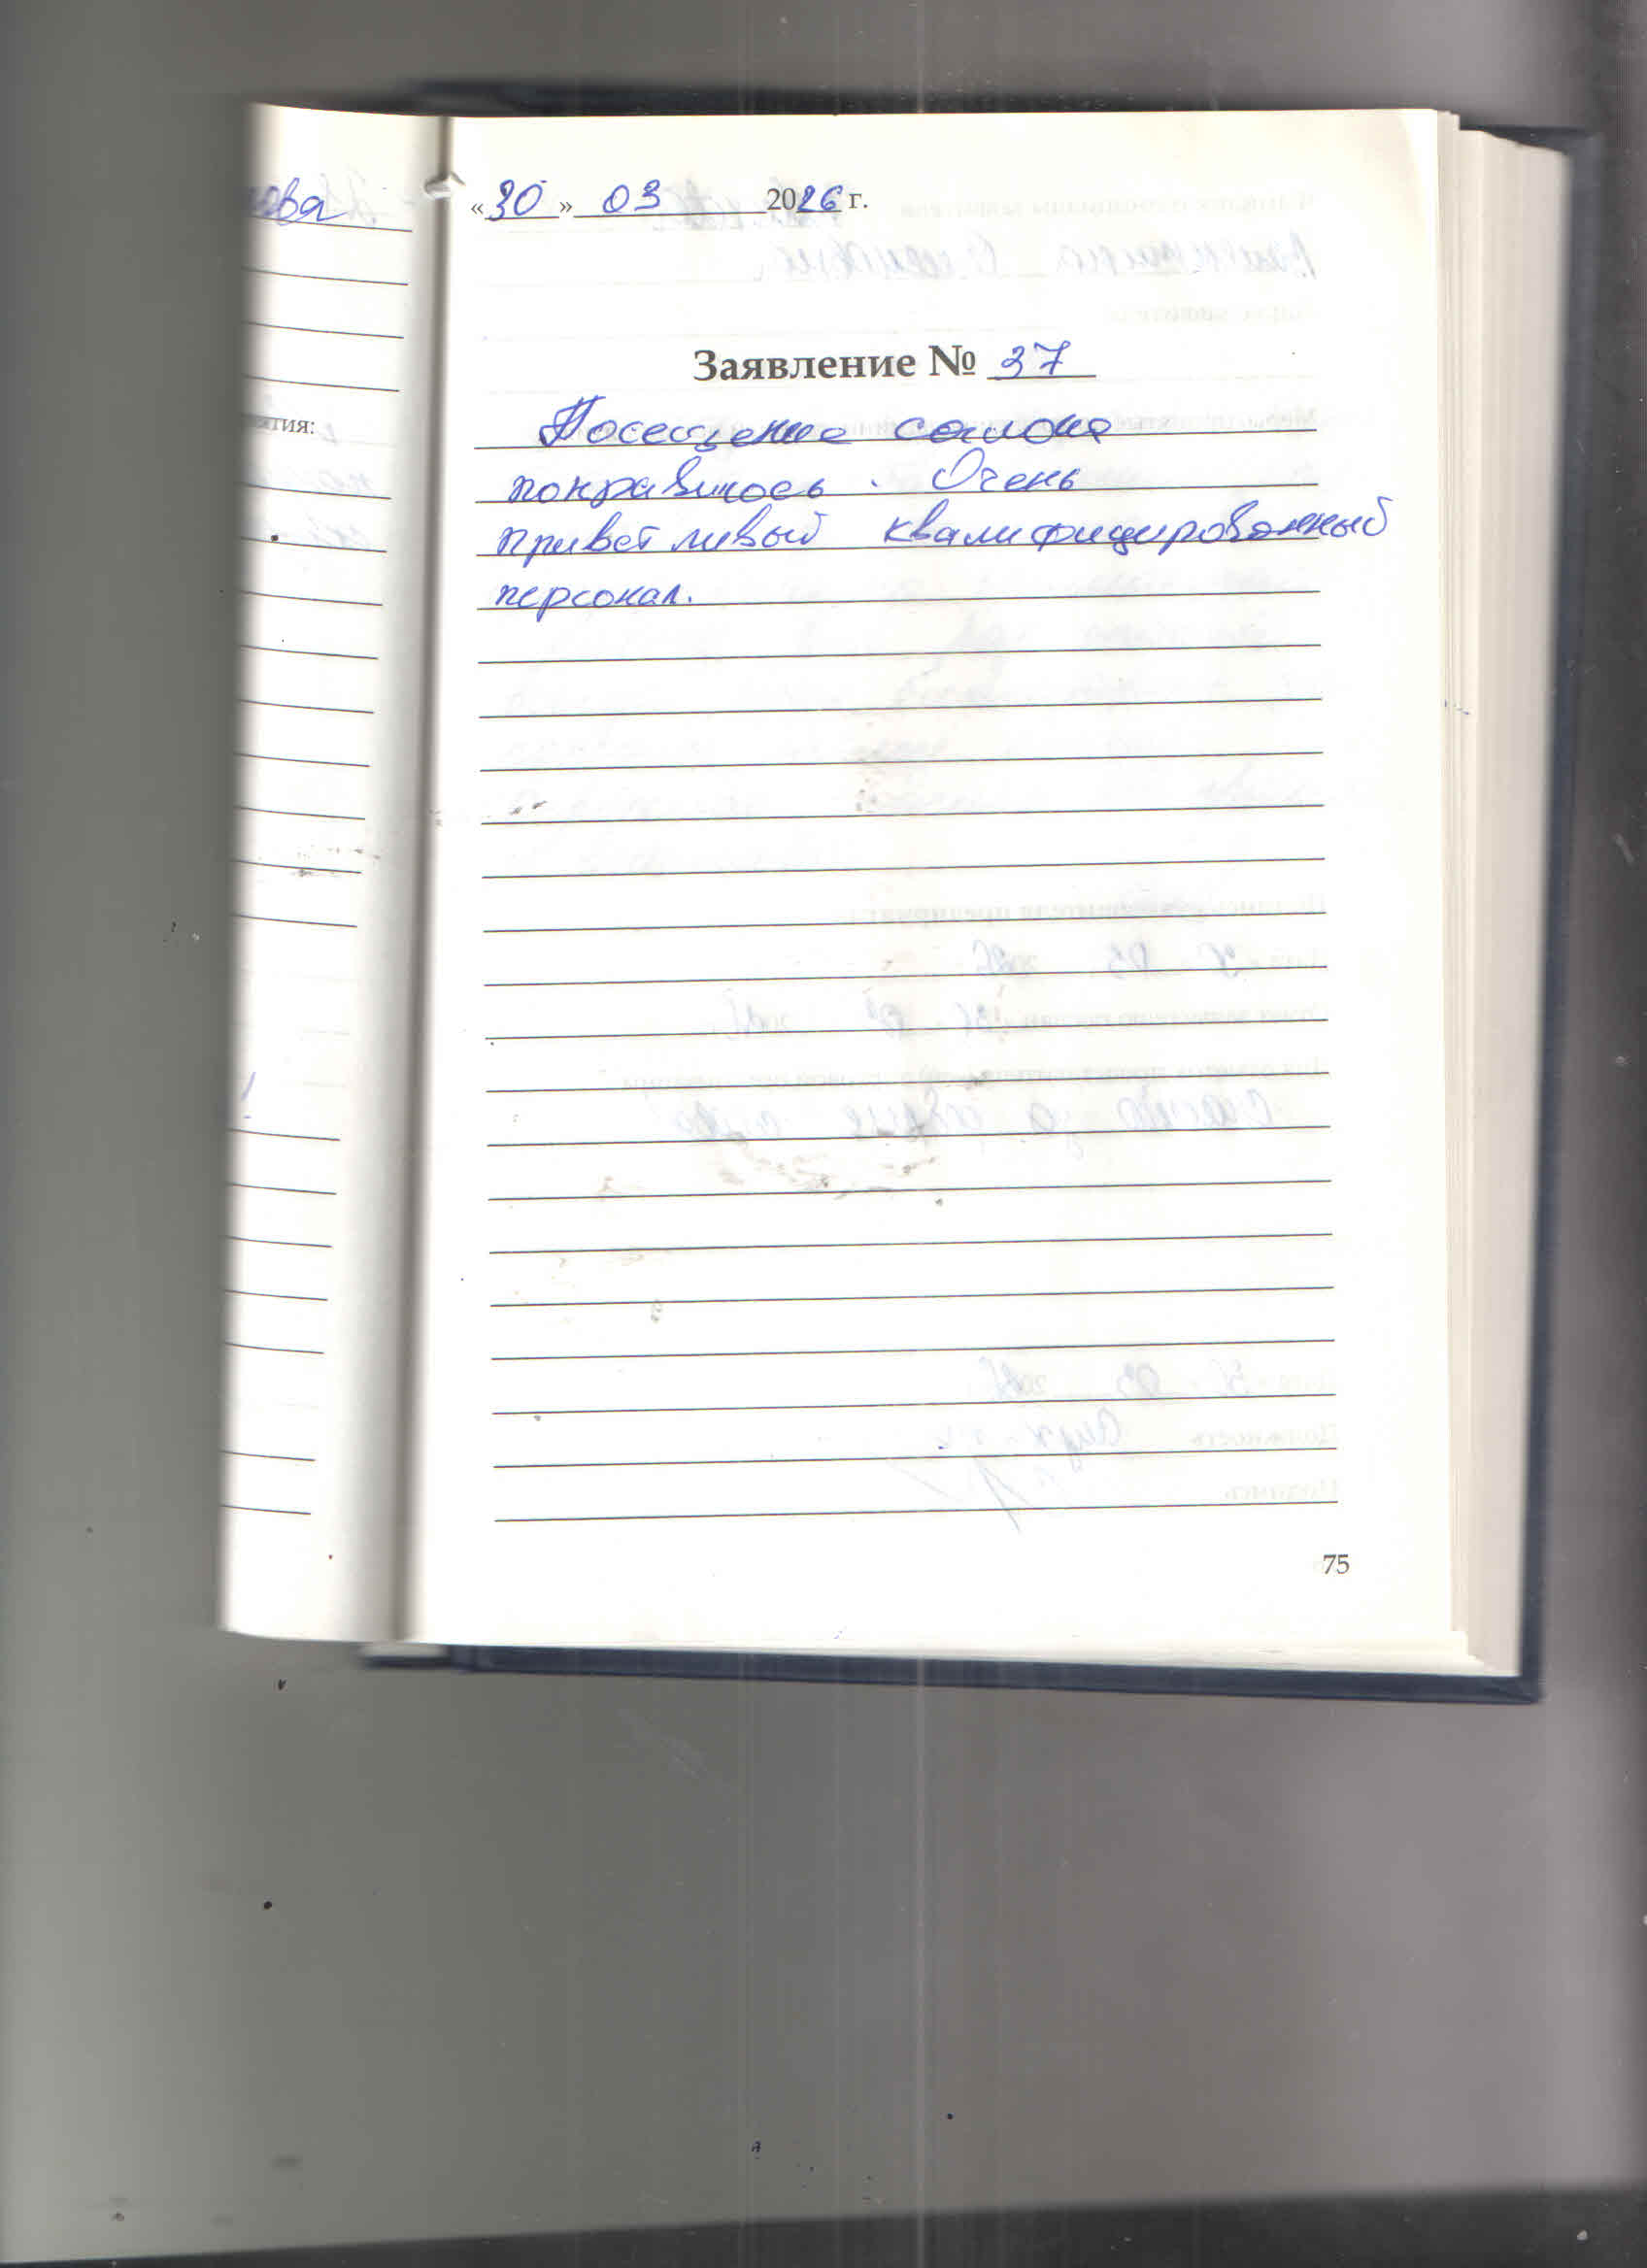 ова
тия:
«30» 03 2026 г.
Заявление № 37
Посещение салона
понравилось. Очень
приветливый квалифицированный
персонал.
75